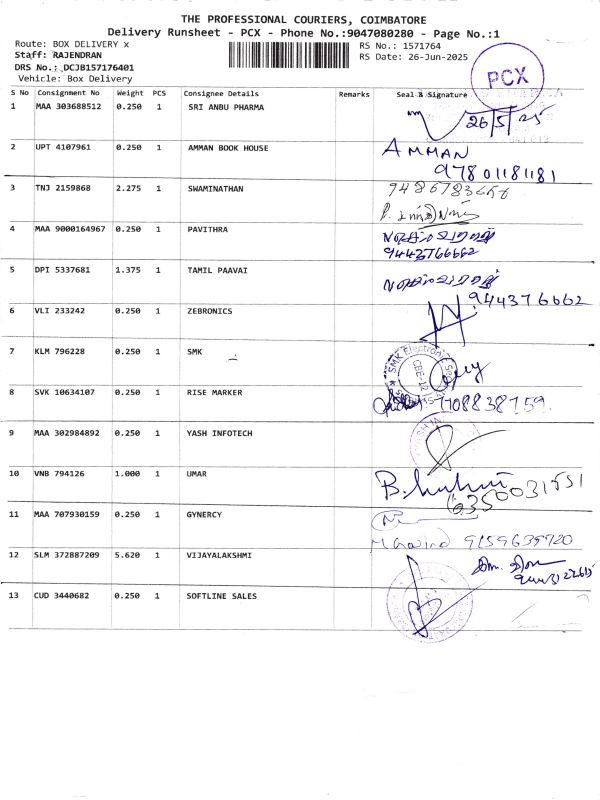 THE PROFESSIONAL COURIERS, COIMBATORE
Delivery Runsheet - PCX - Phone No.:9047080280 - Page No.:1
Route: BOX DELIVERY x
RS No.: 1571764
Staff: RAJENDRAN
RS Date: 26-Jun-2025
DRS No.: DCJB157176401
Vehicle: Box Delivery
PCX
S No Consignment No Weight PCS Consignee Details Remarks Seal & Signature
1 MAA 303688512 0.250 1 SRI ANBU PHARMA
26/5/25
2 UPT 4107961 0.250 1 AMMAN BOOK HOUSE AMMAN
97801181181
3 TNJ 2159868 2.275 1 SWAMINATHAN
4 MAA 9000164967 0.250 1 PAVITHRA
9443766662
5 DPI 5337681 1.375 1 TAMIL PAAVAI
944376662
6 VLI 233242 0.250 1 ZEBRONICS
7 KLM 796228 0.250 1 SMK
SMK Electronic
CBE-12
8 SVK 10634107 0.250 1 RISE MARKER 7708838759
9 MAA 302984892 0.250 1 YASH INFOTECH
10 VNB 794126 1.000 1 UMAR
6350031551
11 MAA 707930159 0.250 1 GYNERCY
9159639720
12 SLM 372887209 5.620 1 VIJAYALAKSHMI
13 CUD 3440682 0.250 1 SOFTLINE SALES